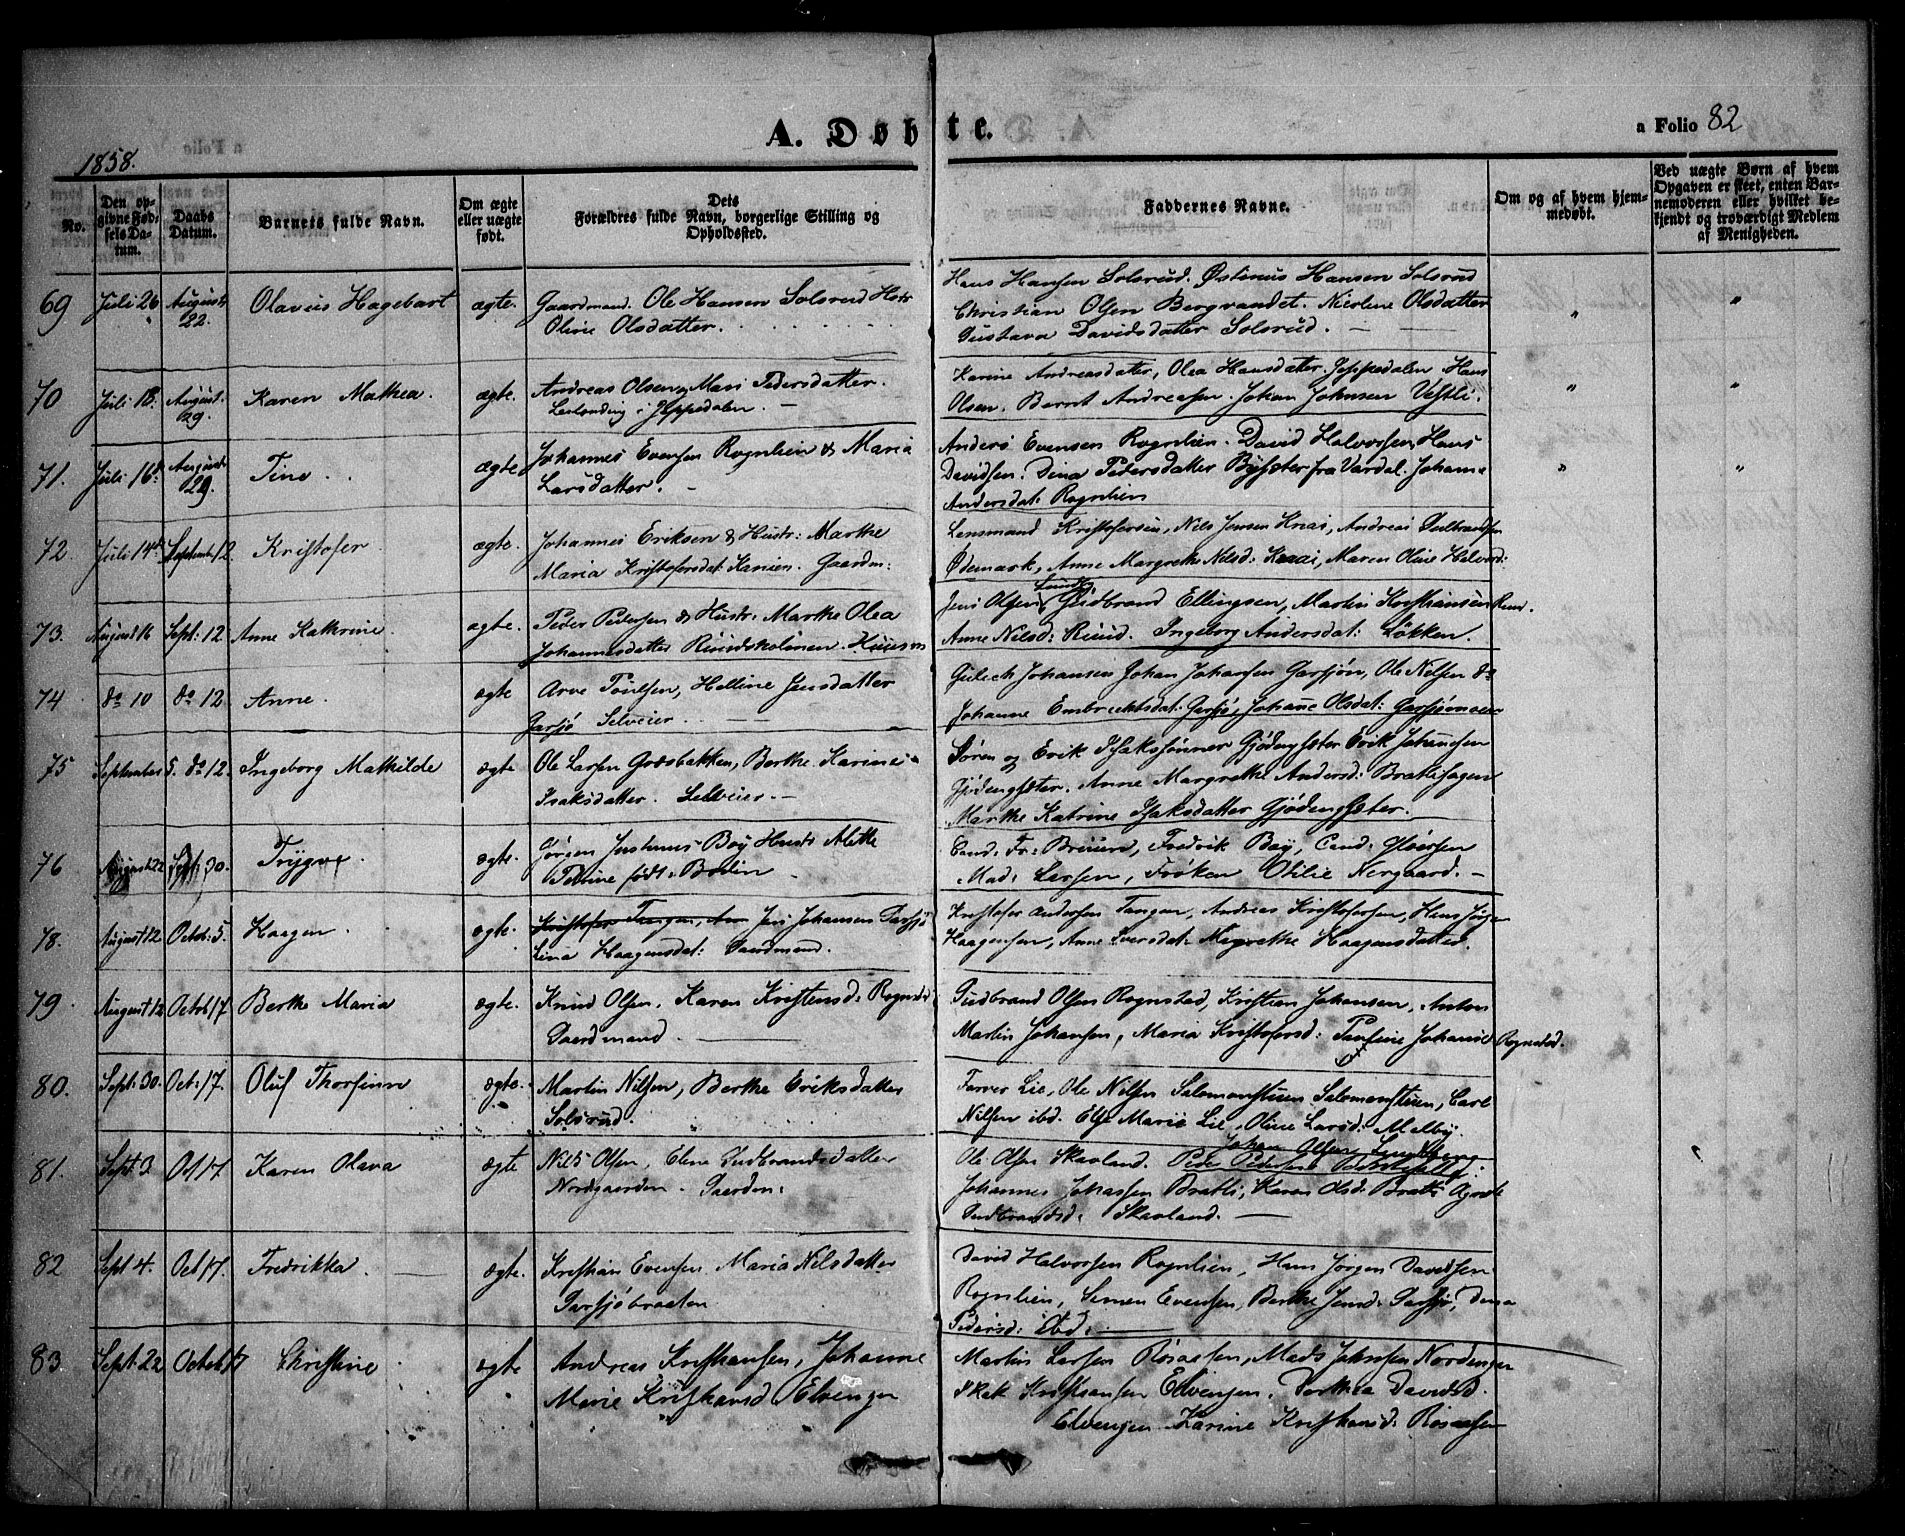 A. Døbte.
a Folio 82
1858.
No.
Den opgivne Fødsels Datum.
Daabs Datum.
Barnets fulde Navn.
Om ægte eller uægte født.
Dets Forældres fulde Navn, borgerlige Stilling og Opholdssted.
Faddernes Navne.
Om og af hvem hjemmedøbt.
Ved uægte Børn af hvem Opgaven er skeet, enten Barnemoderen eller hvilket bekjendt og troværdigt Medlem af Menigheden.
69 Juli 26 August 22. Olavus Hagebart ægte. Gaardmand. Ole Hansen Solsrud Hustr
Oline Olsdatter.
Hans Hansen Solsrud. Østinus Hansen Solsrud
Christian Olsen Bergvandet. Nicoline Olsdatter
Gustava Davidsdatter Solsrud. " "
70 Juli 18. August 29. Karen Mathea. ægte. Andreas Olsen, Mari Pedersdatter.
i Jeppedalen.
Karine Andreasdatter, Olea Hansdatter. Jeppedalen Hans
Olsen. Bernt Andreasen. Johan Johnsen Vestli. " "
71. Juli 16d August 29. Tine ægte Johannes Evensen Rognlien & Maria
Larsdatter.
Anders Evensen Rognlien. David Halvorsen, Hans
Davidsen. Dina Pedersdatter Bysæter fra Vardal. Johanne
Andersdat: Rognlien " "
72. Juli 14d Septemb: 12 Kristofer ægte. Johannes Eriksen & Hustr: Marthe
Maria Kristofersdat: Gaardm:
Lensmand Kristofersen, Nils Jensen Knai, Andreas Gulbrandsen
Ødemark, Anne Margrethe Nilsd: Knai, Maren Oline Halvors:
73. August 16 Sept: 12 Anne Kathrine. ægte. Peder Pedersen & Hustr: Marthe Olea
Johannesdatter Ruudskolinen. Huusm
Jens Olsen Lund, Gudbrand Ellingsen, Martin Kristiansen Ruud.
Anne Nilsd: Ruud. Ingeborg Andersdat: Løkken.
74 do 10 do 12 Anne. ægte Arve Poulsen, Helline Jensdatter
Garsjø Selveier.
Gulech Johansen Johan Johansen Garsjøn, Ole Nilsen do
Johanne Embrechtsdat: Garsjø, Johanne Olsdat: Garsjøn
75 September 5. do 12. Ingeborg Mathilde ægte Ole Larsen Grøsbakken, Berthe Karine
Isaksdatter. Selveier.
Søren og Erik Isaksønner Gjødengsæter Erik Johannsen
Gjødengsæter. Anne Margrethe Andersd: Bratlihagen
Marthe Katrine Isaksdatter Gjødengsæter.
76 August 22 Sept: 30. Trygve. ægte. Jørgen Justinus Bøy Hustr Alette
Petrine født: Bodin
Cand: Fr: Bruun, Fredrik Bøy, Cand: Iversen
Mad: Larsen, Frøken Otilie Nergaard.
78. August 12 Octob: 5. Haagen ægte. Kristofer Tangen, An Jens Johansen Garsjø
Lina Haagensdat: Gaardmand.
Kristofer Andersen Tangen, Andreas Kristofersen, Hans Jørgen
Haagensen, Anne Iversdat: Margrethe Haagensdatter.
79 August 12 Octob 17 Berthe Maria ægte. Knud Olsen. Karen Kristensd: Rognstad
Gaardmand
Gudbrand Olsen Rognstad, Kristian Johansen, Anton
Martin Johansen, Maria Kristofersd: Pauline Johanne Rognstad.
80. Sept: 30. Oct: 17. Oluf Thorfinn ægte. Martin Nilsen, Berthe Eriksdatter
Solsrud.
Farver Lie, Ole Nilsen Salomonstuen Salomonstuen, Carl
Nilsen ibd. Else Marie Lie, Oline Larsd: Melby.
81. Sept 3 Oct 17 Karen Olava ægte Nils Olsen, Elene Gudbrandsdatter
Nordgaarden. Gaardm:
Ole Olsen Skavland. Peder Pedersen
Johan Olsen
Johannes Johansen Bratli, Karen Olsd: Bratli Agnete
Gudbrandsd: Skavland.
82 Sept 4. Oct 17. Fredrikka ægte. Kristian Evensen. Maria Nilsdatter
Garsjøbraaten
David Halvorsen Rognlien, Hans Jørgen Davidsen
Rognlien, Simen Evensen, Berthe Jensd: Garsjø, Dina
Pedersd: Ibd:
83 Sept: 22 Octob 17 Christine ægte Andreas Kristiansen, Johanne
Marie Kristiansd Elvengen
Martin Larsen Rosaasen, Mads Johnsen Nordengen
Isak Kristiansen Elvengen. Dorthea Davidsd.
Elvengen Karine Kristiansd: Rosaasen